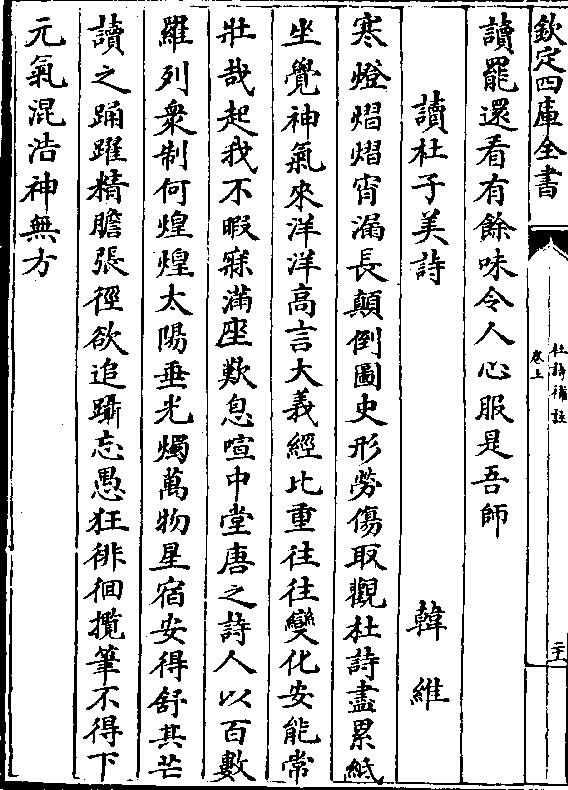 欽定四庫全書
杜詩補註
卷上
二十
讀罷還看有餘味令人心服是吾師
讀杜子美詩
韓維
寒燈熠熠宵漏長顛倒圖史形勞傷取觀杜詩盡累紙
坐覺神氣來洋洋高言大義經比重往往變化安能常
壯哉起我不暇寐滿座歎息喧中堂唐之詩人以百數
羅列衆制何煌煌太陽垂光燭萬物星宿安得舒其芒
讀之踊躍精膽張徑欲追躡忘愚狂徘徊攬筆不得下
元氣混浩神無方